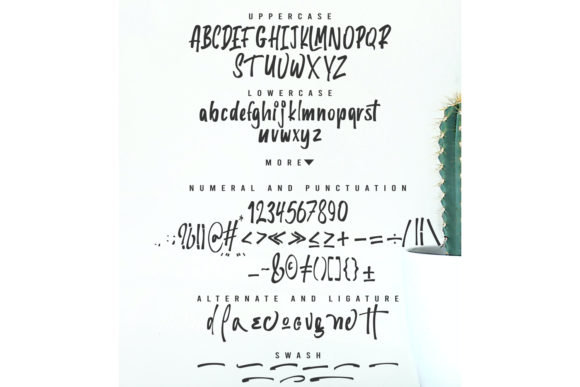 UPPERCASE
ABCDEFGHIJKLMNOPQR
STUVWXYZ
LOWERCASE
abcdefghijklmnopqrst
uvwxyz
MORE▼
NUMERAL AND PUNCTUATION
1234567890
@#<>≪≫≤≥+-=÷/||\
_~&©≠()[]{}±
ALTERNATE AND LIGATURE
SWASH